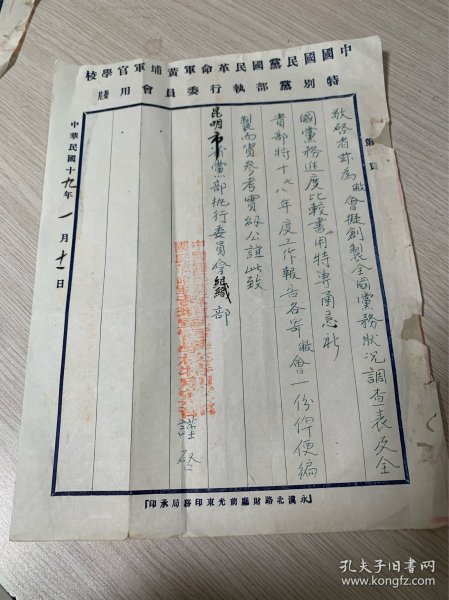 中國國民黨國民革命軍黃埔軍官學校
特別黨部執行委員會用牋
第 頁
敬啓者茲為敝會擬創製全國黨務狀況調查表及全
國黨務進度比較書用特專函懇祈
貴部將十七八年度工作報告各寄敝會一份俾便編
製而資參考實紉公誼此致
昆明市黨部執行委員會組織部
謹啓
中華民國十九年一月十一日
「永漢北路財廳前光東印務局承印」
孔夫子旧书网
www.kongfz.com